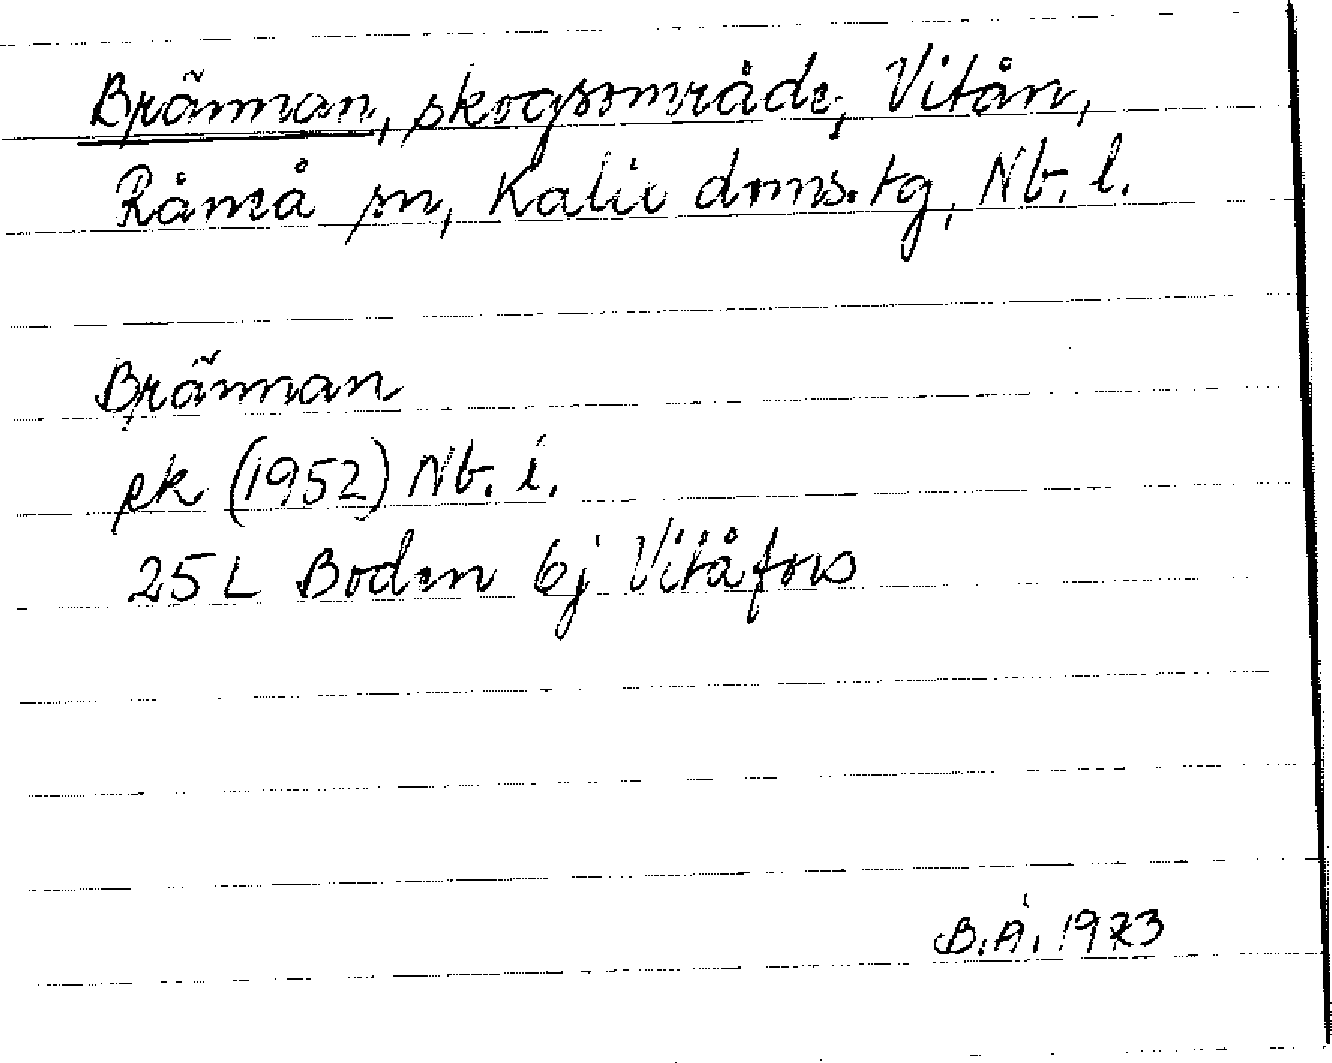 Brännan, skogsområde, Vitån,
Råneå sn, Kalix doms.tg, Nb. l.
Brännan
ek (1952) Nb. l.
25 L Boden 6j Vitåfors
B.Å. 1973